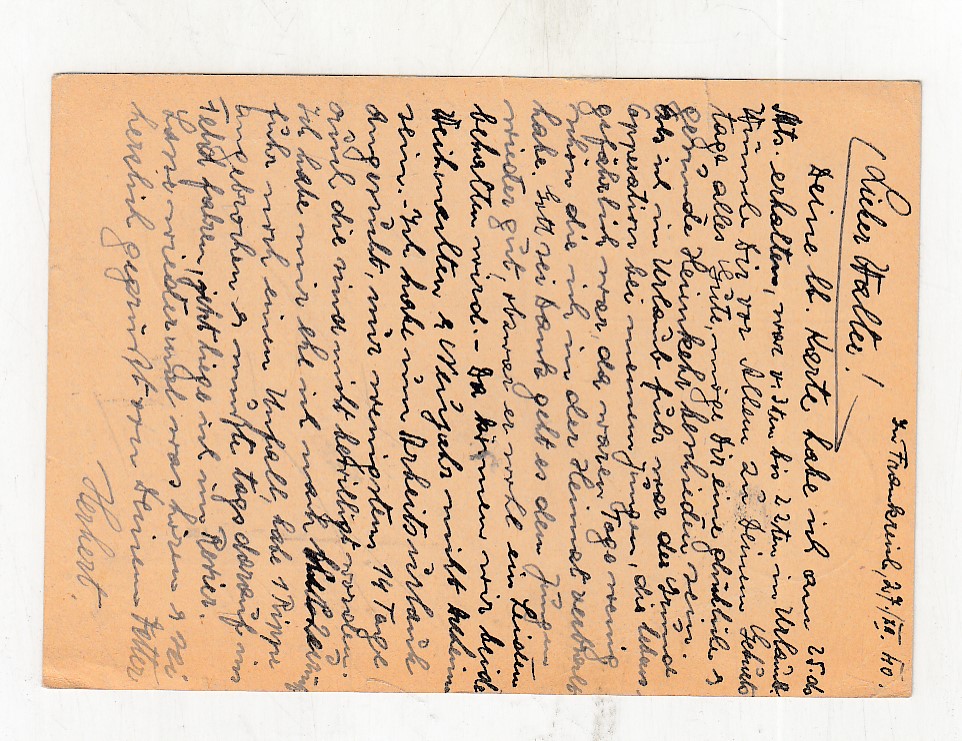 In Frankreich, 27/XII. 40.
Lieber Walter!
Deine lb. Karte habe ich am 25. ds
Mts. erhalten, war v. 3ten bis 22ten in Urlaub.
Wünsche Dir vor Allem zu Deinem Geburts-
tage alles Gute, möge Dir eine glückliche &
gesunde Heimkehr beschieden sein.
Das ich in Urlaub fuhr war der Grund
Opperation bei meinem Jungen, die lebens-
gefährlich war, da waren Tage wenig
schön die ich in der Heimat verbracht
habe. Gott sei Dank geht es dem Jungen
wieder gut, obzwar er wohl ein Leiden
behalten wird. - Da können wir beide
Weihnachten & Neujahr nicht daheim
sein. - Ich habe um Arbeitsurlaub
angesucht, nur wenigstens 14 Tage
auch die sind nicht bewilligt worden.
Ich hatte mir ehe ich nach
fuhr noch einen Unfall, habe 1 Rippe
angebrochen & mußte tags darauf ins
Feld fahren, jetzt liege ich im Revier.
Lass wieder mal was hören & sei
herzlich gegrüßt von Deinem Vetter
Herbert.